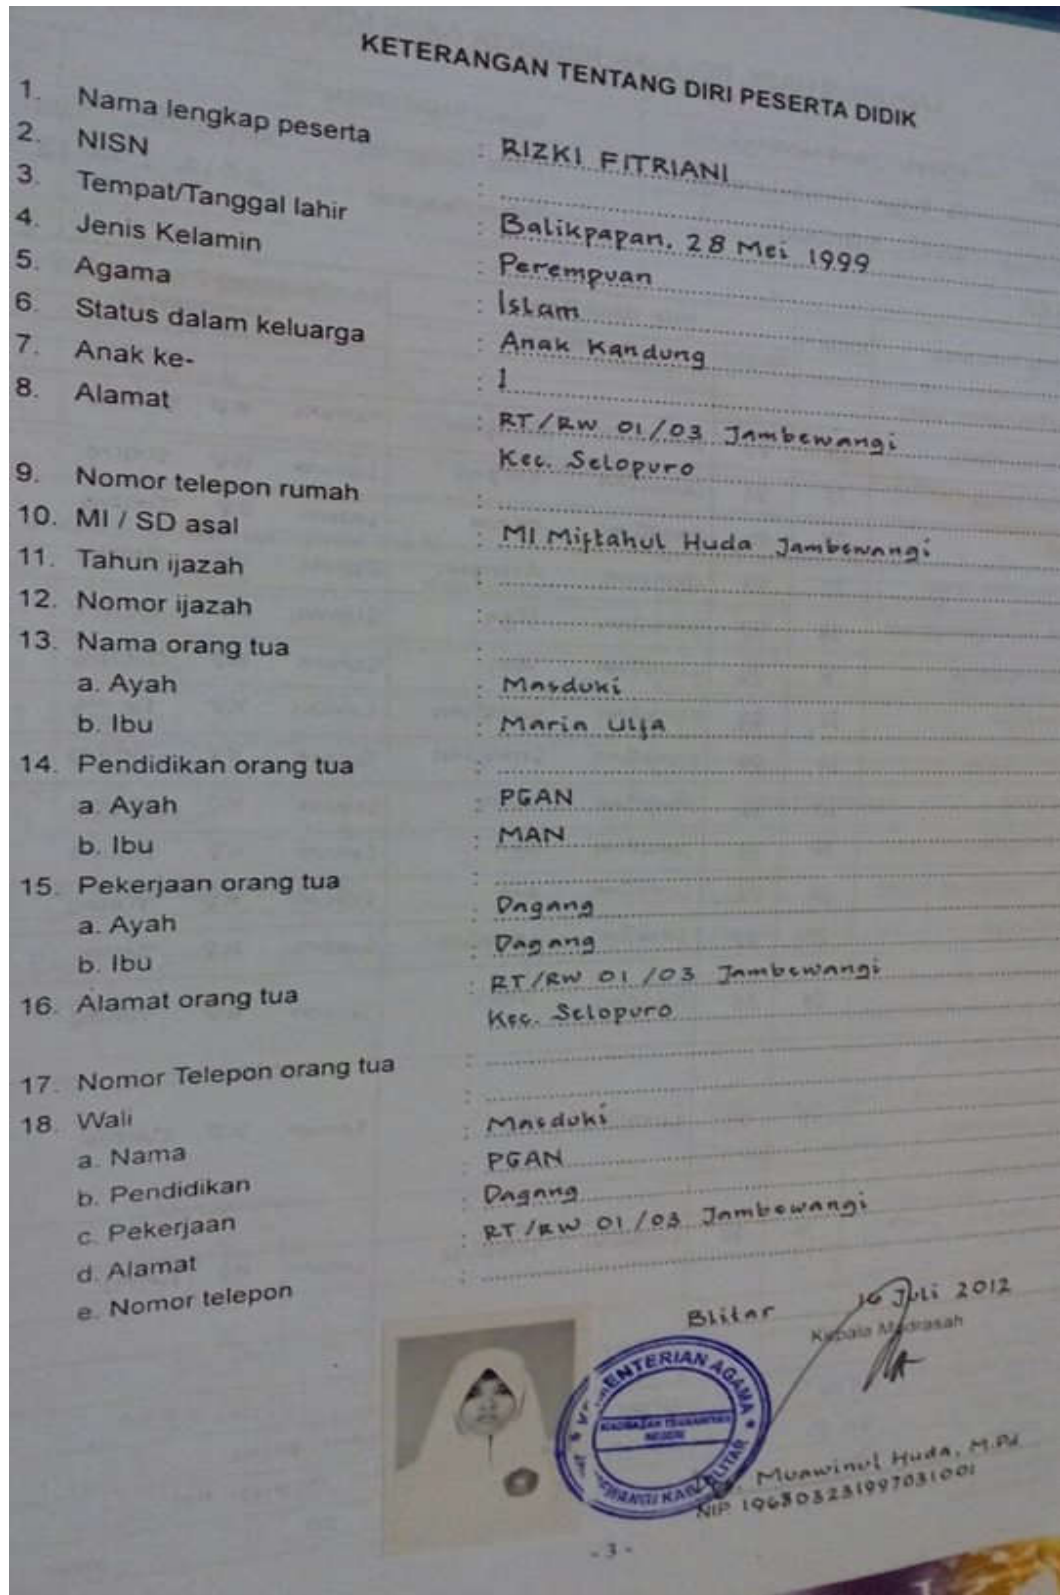 KETERANGAN TENTANG DIRI PESERTA DIDIK
1. Nama lengkap peserta : RIZKI FITRIANI
2. NISN :
3. Tempat/Tanggal lahir : Balikpapan, 28 Mei 1999
4. Jenis Kelamin : Perempuan
5. Agama : Islam
6. Status dalam keluarga : Anak Kandung
7. Anak ke- : 1
8. Alamat : RT/RW 01/03 Jambewangi
Kec. Selopuro
9. Nomor telepon rumah :
10. MI / SD asal : MI Miftahul Huda Jambewangi
11. Tahun ijazah :
12. Nomor ijazah :
13. Nama orang tua :
a. Ayah : Masduki
b. Ibu : Maria Ulfa
14. Pendidikan orang tua :
a. Ayah : PGAN
b. Ibu : MAN
15. Pekerjaan orang tua :
a. Ayah : Dagang
b. Ibu : Dagang
16. Alamat orang tua : RT/RW 01/03 Jambewangi
Kec. Selopuro
17. Nomor Telepon orang tua :
18. Wali :
a. Nama : Masduki
b. Pendidikan : PGAN
c. Pekerjaan : Dagang
d. Alamat : RT/RW 01/03 Jambewangi
e. Nomor telepon :
Blitar 16 Juli 2012
Kepala Madrasah
KEMENTERIAN AGAMA
MADRASAH TSANAWIYAH
NEGERI
KAB. BLITAR
Muawinul Huda, M.Pd
NIP. 196803231997031001
- 3 -